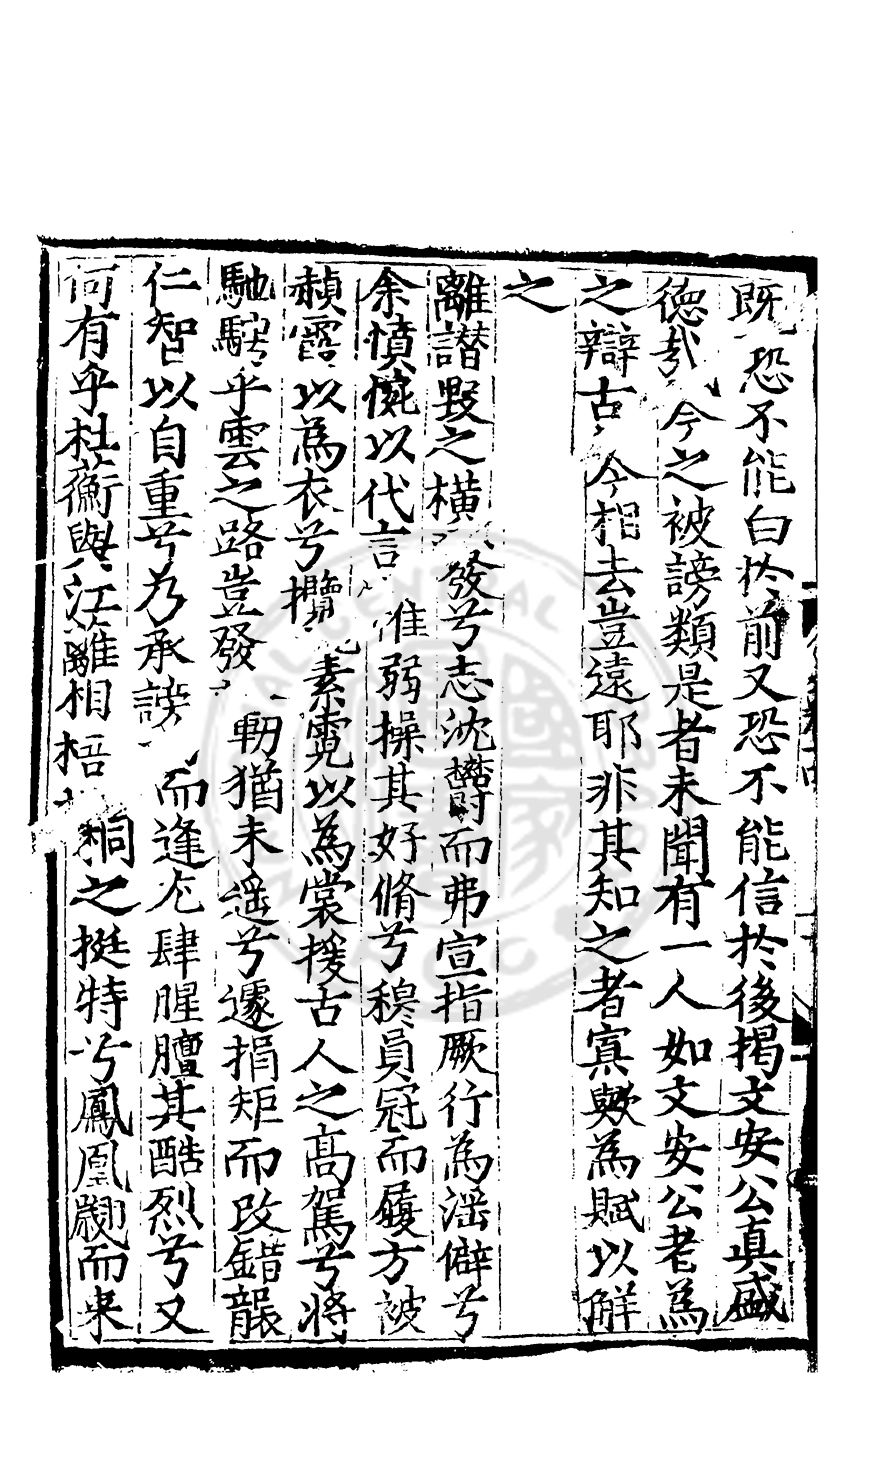 既恐不能白扵前又恐不能信扵後揭文安公真盛
徳哉今之被謗類是者未聞有一人如文安公老為
之辯古今相去豈遠耶非其知之者寡歟為賦以解
之
離譖毀之橫發兮志沈鬱而弗宣指厥行為滛僻兮
余憤慨以代言惟弱操其好脩兮穆員冠而履方被
頳霞以為衣兮攬素霓以為裳援古人之高駕兮將
馳騁乎雲之路豈發軔猶未遥兮遽捐矩而改錯龍
仁智以自重兮乃承謗而逢尤肆腥膻其酷烈兮又
何有乎杜蘅與江蘺相梧桐之挺特兮鳳凰翽而来